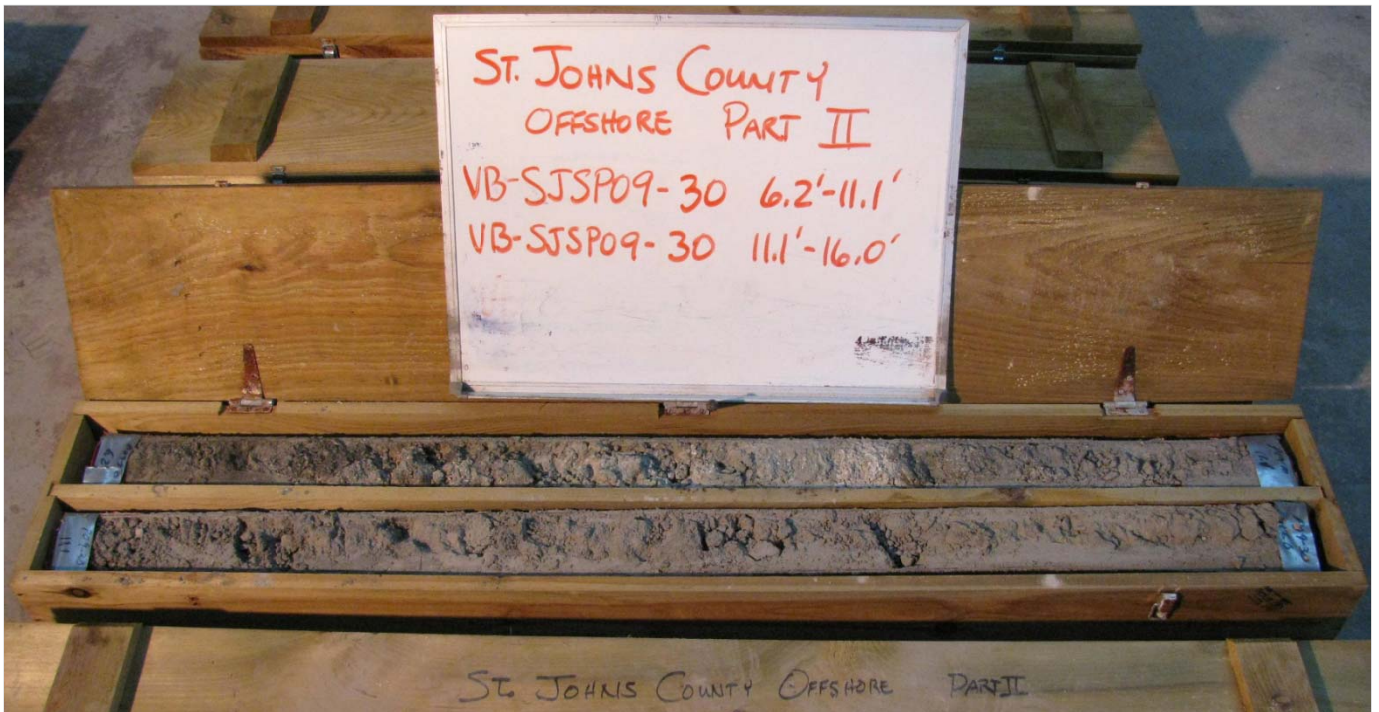 ST. JOHNS COUNTY
OFFSHORE PART II
VB-SJSP09-30 6.2'-11.1'
VB-SJSP09-30 11.1'-16.0'
ST. JOHNS COUNTY OFFSHORE PART II